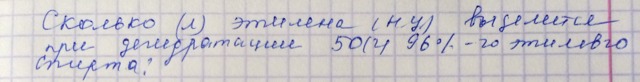 Сколько (л) этилена (н.у) выделится
при дегидратации 50(г) 96% -го этилвго
спирта?